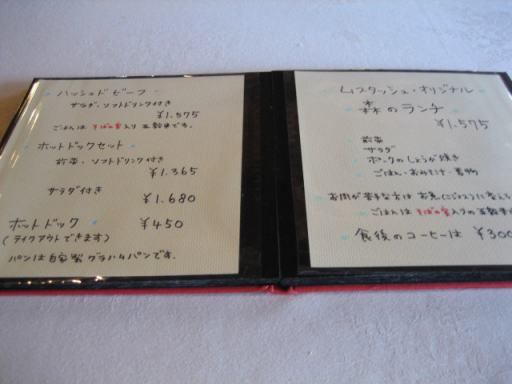 ハッシュドビーフ
サラダ・ソフトドリンク付き
¥1.575
ごはんは そばの実入り 五穀米です。
ホットドックセット
前菜・ソフトドリンク付き
¥1.365
サラダ付き
¥1.680
ホットドック ¥450
(テイクアウトできます)
パンは自家製グラハムパンです。
ムスタッシュ・オリジナル
森のランチ
¥1.575
前菜
サラダ
ポークのしょうが焼き
ごはん・おみそ汁・煮物
お肉が苦手な方は お魚
ごはんは そばの実入りの五穀米
食後のコーヒーは ¥300